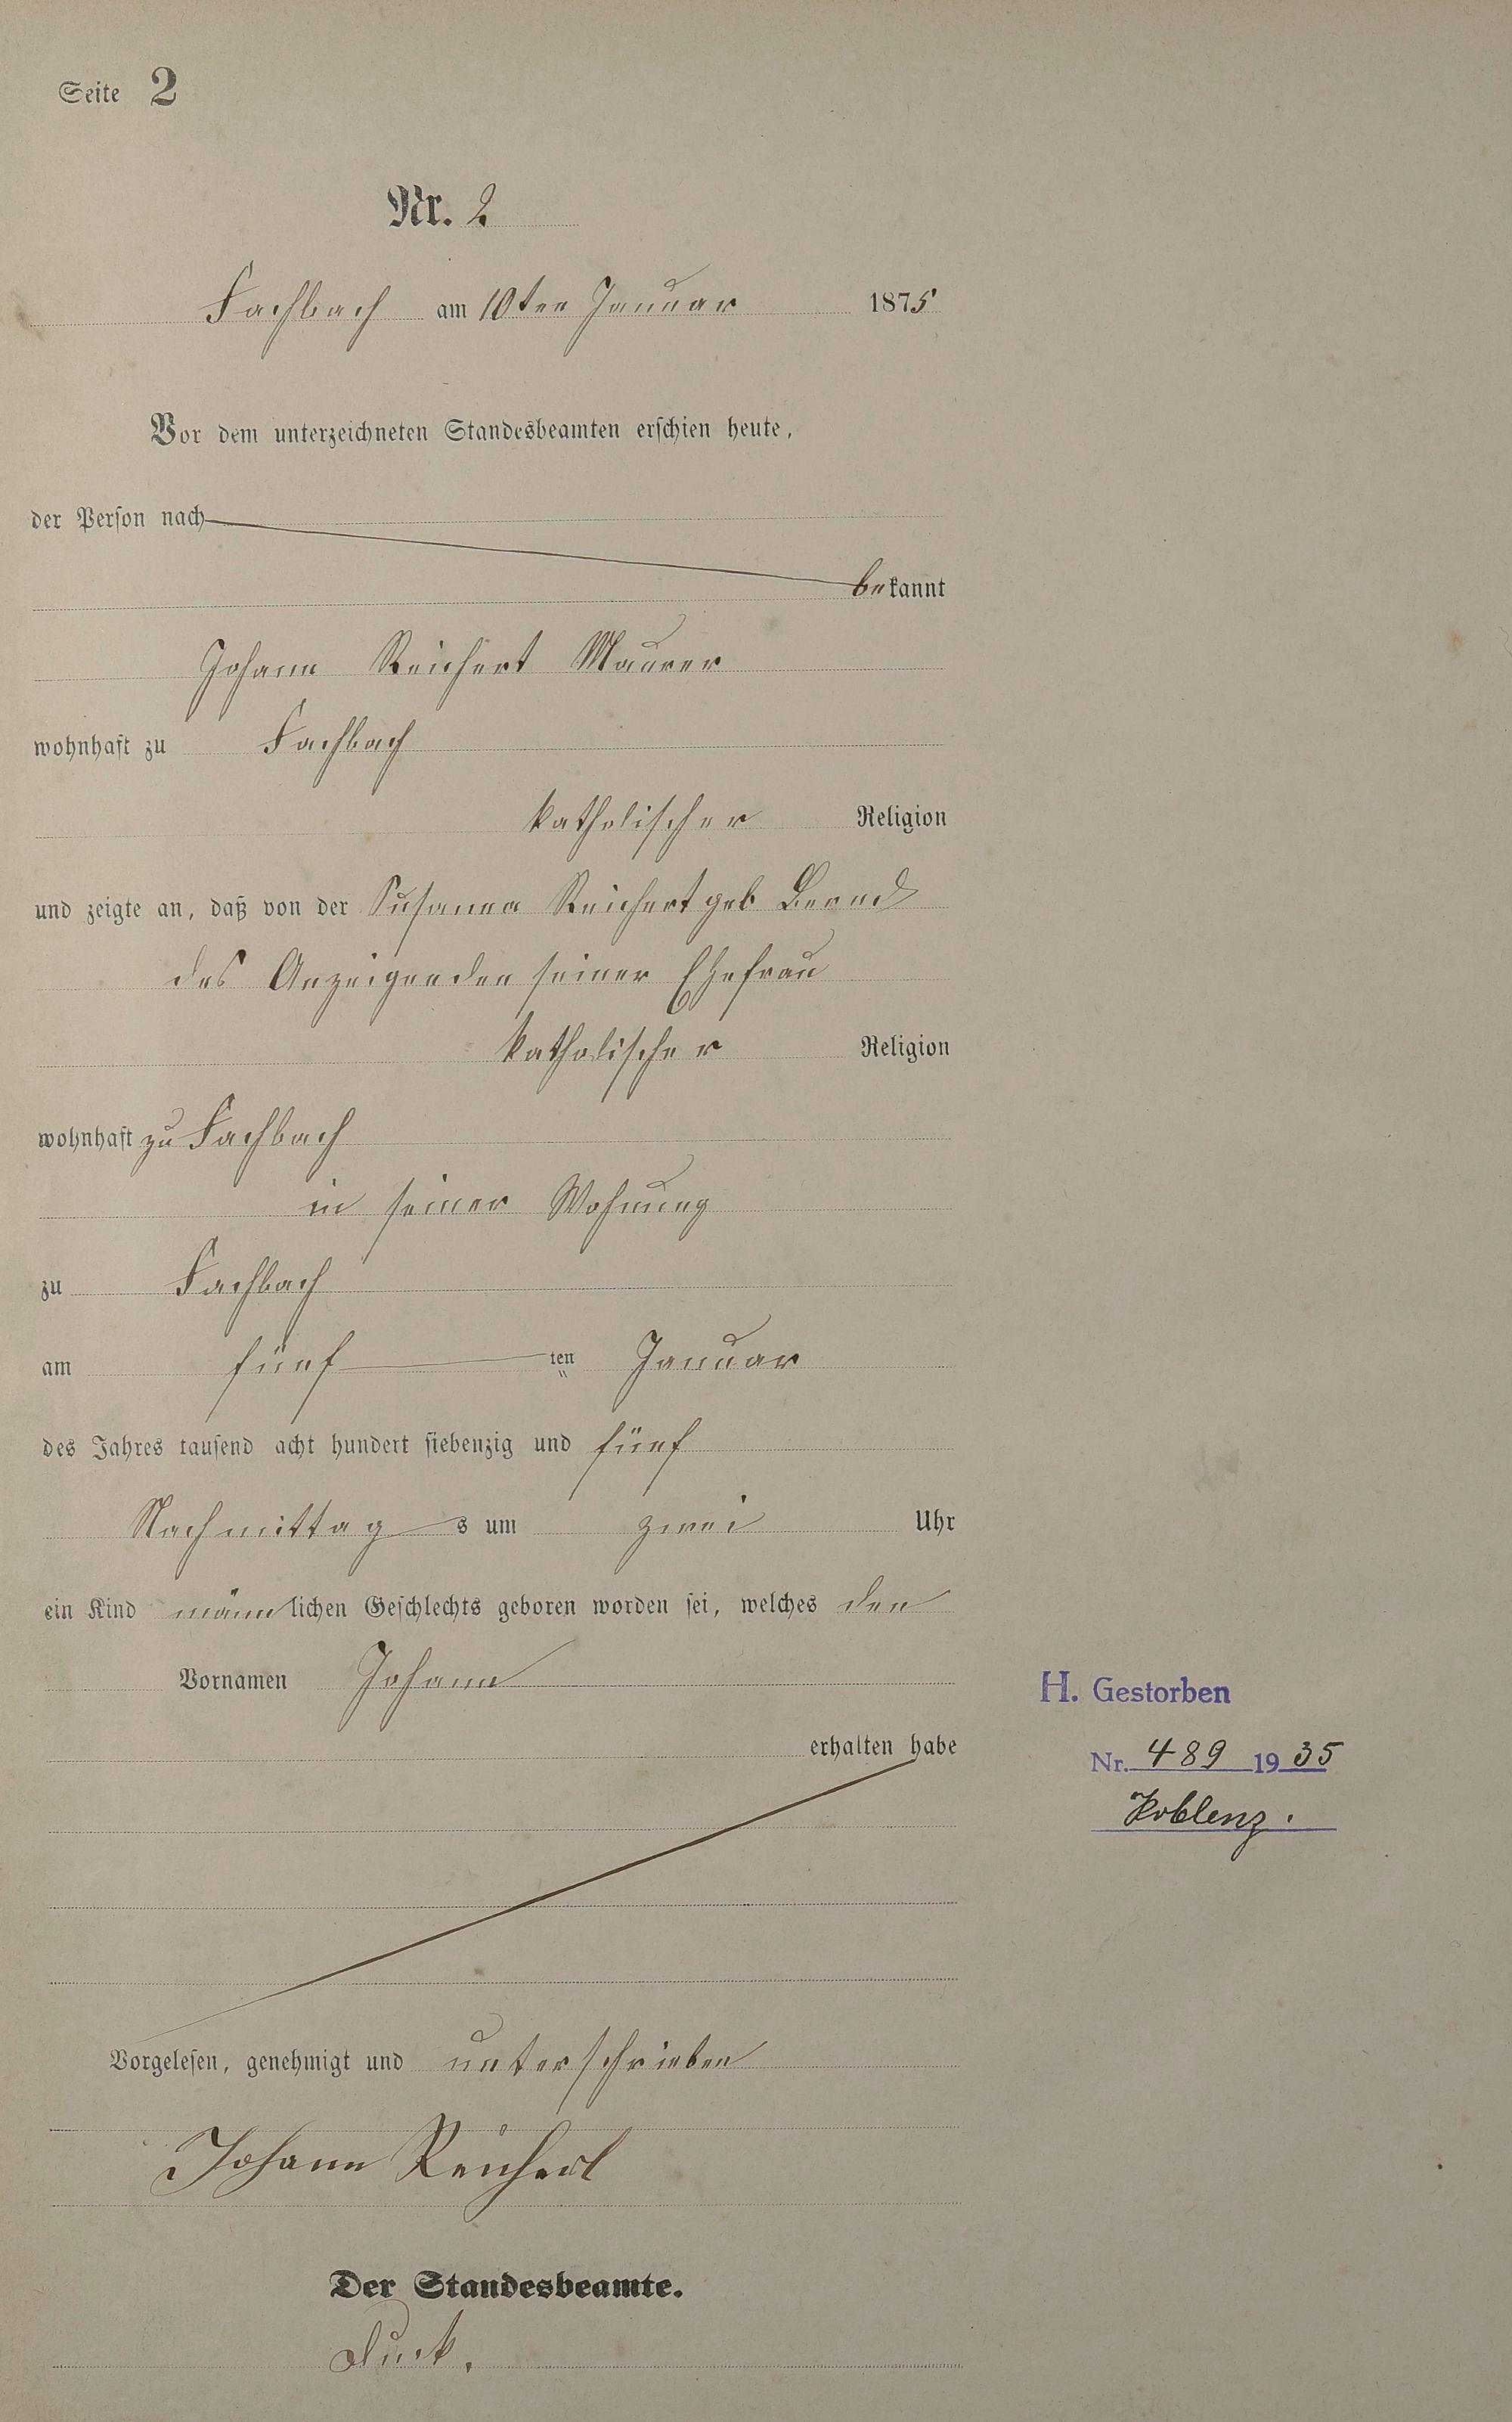 Seite 2
Nr. 2
Fachbach am 10ten Januar 1875
Vor dem unterzeichneten Standesbeamten erschien heute,
der Person nach
bekannt
Johann Reichert Maurer
wohnhaft zu Fachbach
katholischer Religion
und zeigte an, daß von der Susanna Reichert geb Bernd
des Anzeigenden seiner Ehefrau
katholischer Religion
wohnhaft zu Fachbach
in seiner Wohnung
zu Fachbach
am fünf ten Januar
des Jahres tausend acht hundert siebenzig und fünf
Nachmittags um zwei Uhr
ein Kind männlichen Geschlechts geboren worden sei, welches den
Vornamen Johann
erhalten habe
H. Gestorben
Nr. 489 1935
Koblenz.
Vorgelesen, genehmigt und unterschrieben
Johann Reichert
Der Standesbeamte.